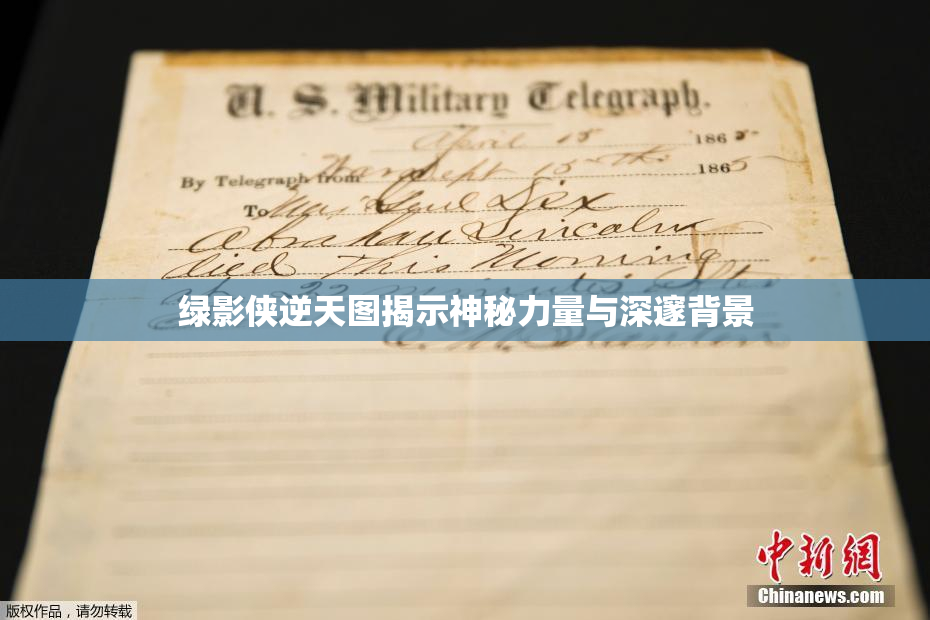 U. S. Military Telegraph.
April 15 1865
By Telegraph from War Dept 15th 1865
To Maj Genl Dix
Abraham Lincoln
died This Morning
at 22 minutes after
绿影侠逆天图揭示神秘力量与深邃背景
E. M. Stanton
中新網
Chinanews.com
版权作品，请勿转载